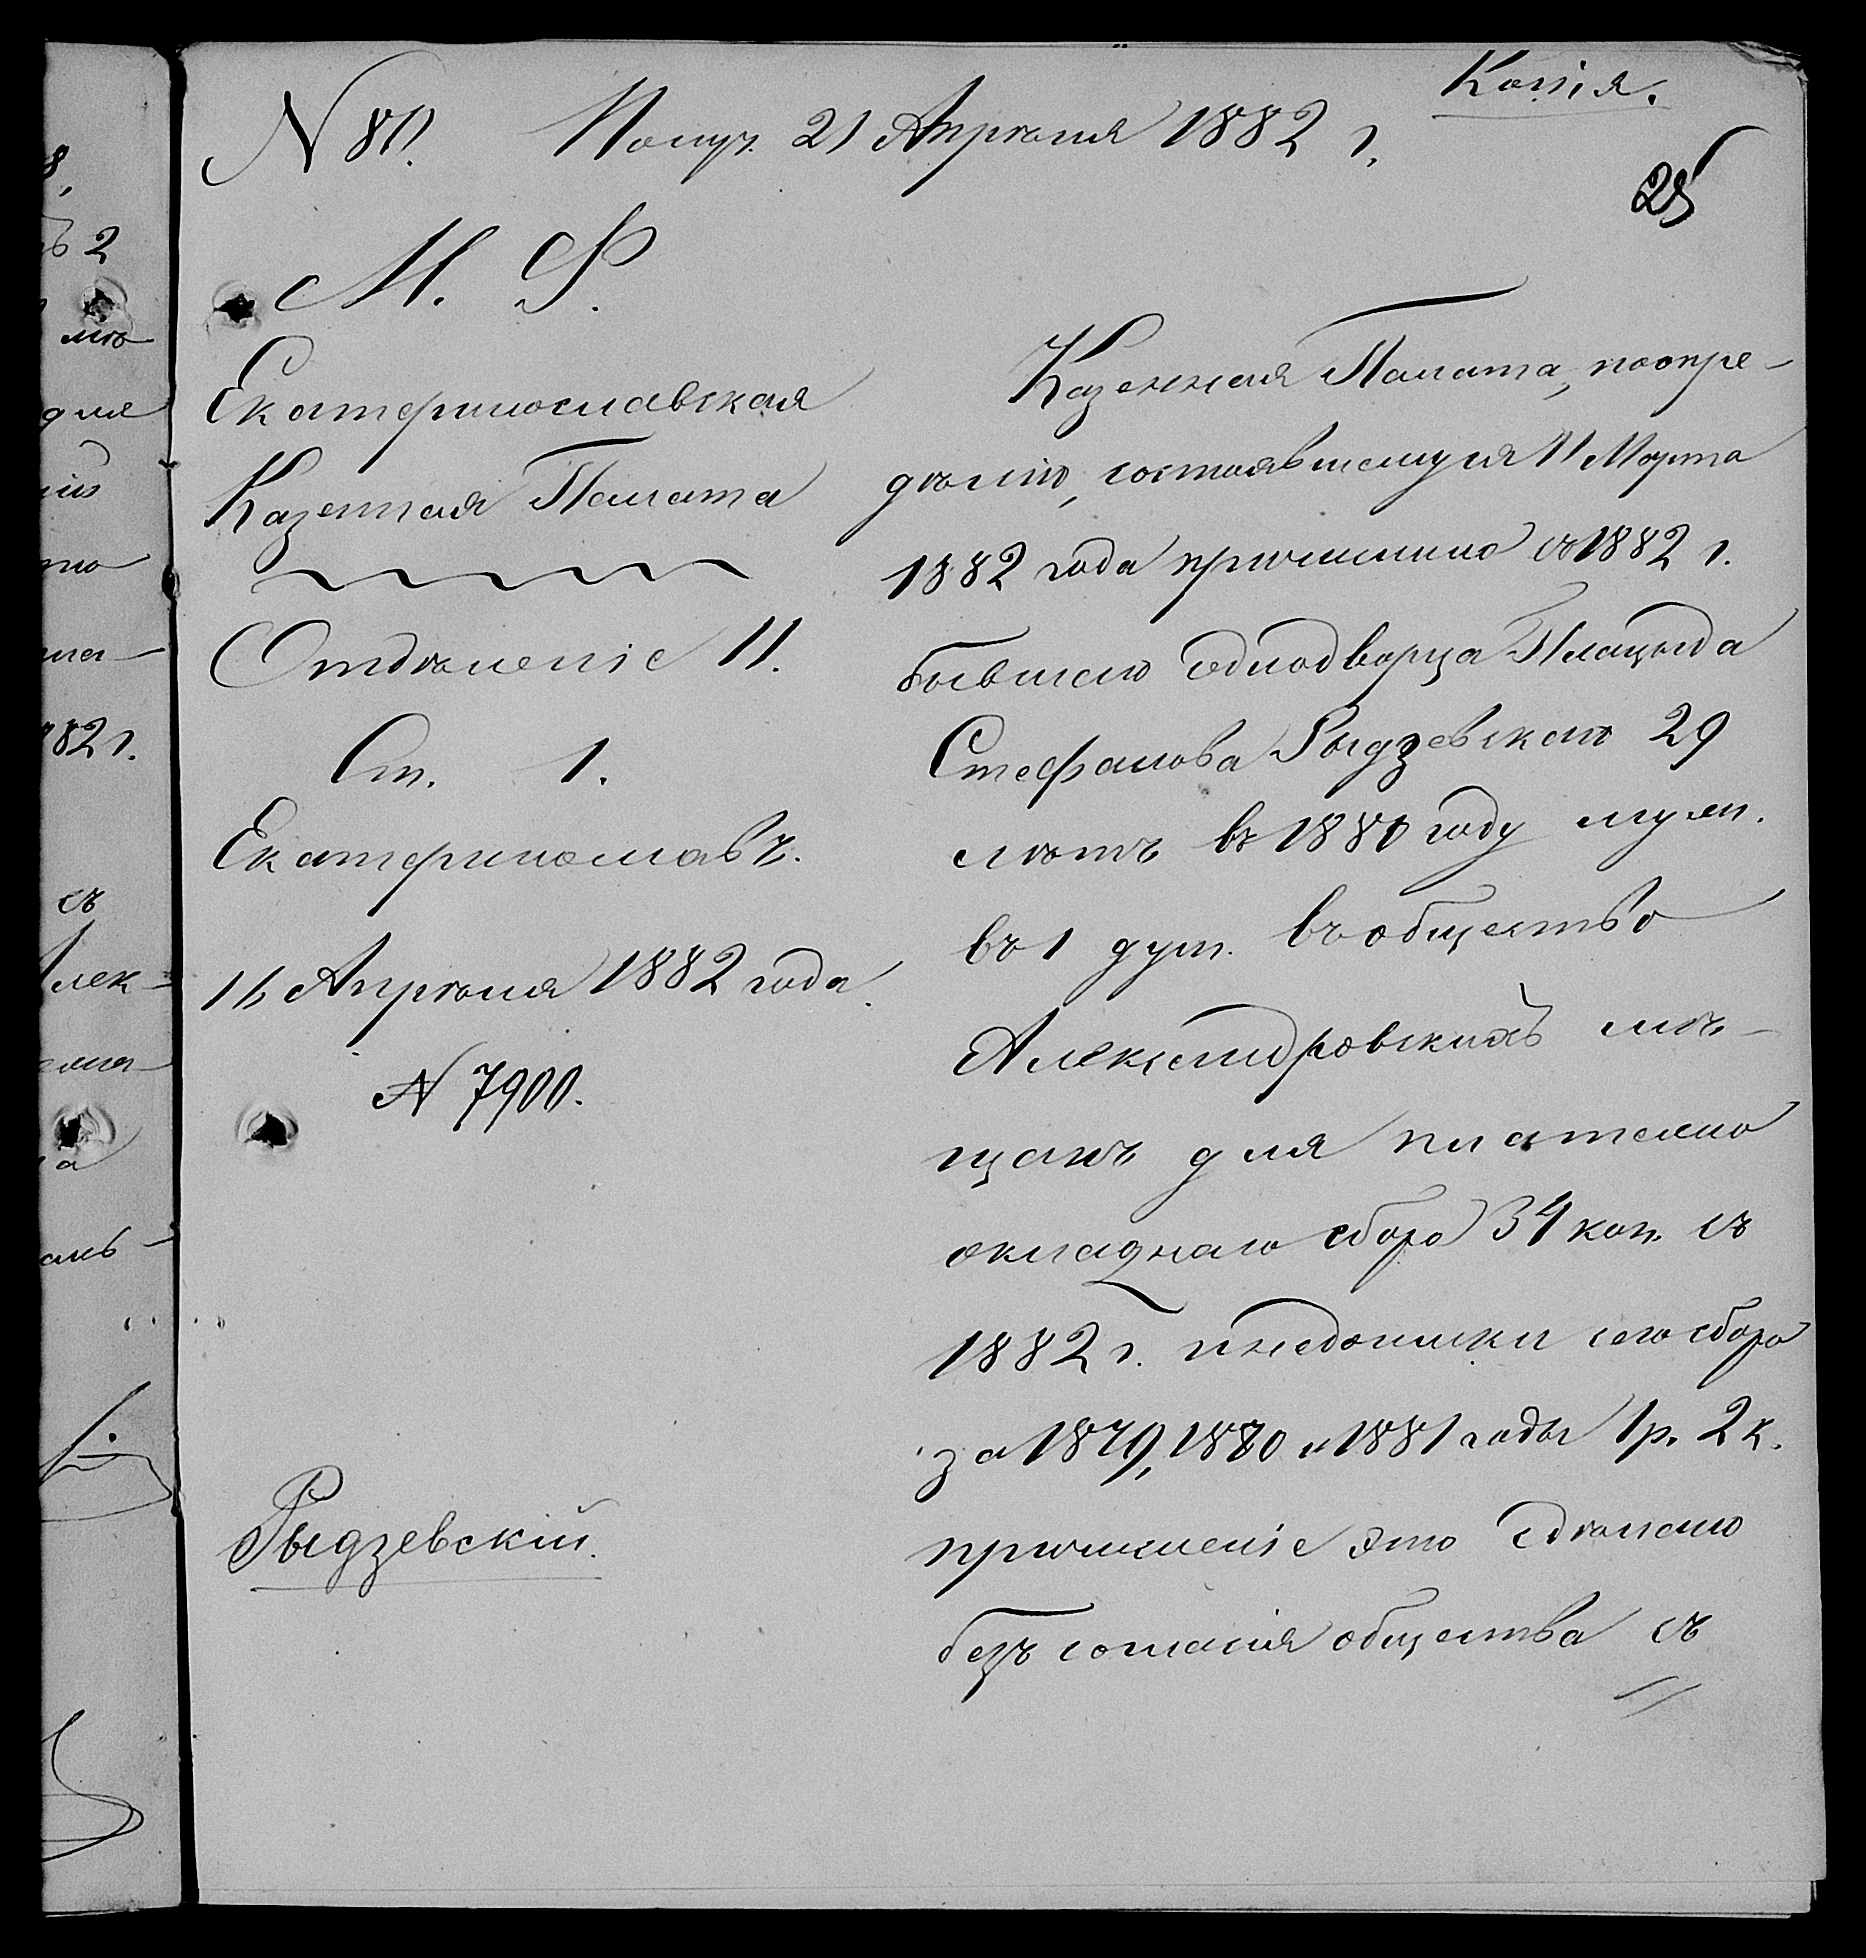 Копія.
N 80. Получ. 21 Апрѣля 1882 г.
25
М. Ф.
Екатеринославская
Казенная Палата
Отдѣленіе II.
Ст. 1.
Екатеринославъ.
16 Апрѣля 1882 года.
N 7900.
Рыдзевскій.
Казенная Палата, по опре-
дѣлію, состоявшемуся 11 Марта
1882 года причислила съ 1882 г.
бывшаго однодворца Плацыда
Стефанова Рыдзевскаго 29
лѣтъ въ 1880 году муж.
въ 1 душ. въ общество
Александровскихъ мѣ-
щанъ для платежа
окладнаго сбора 34 коп. съ
1882 г. и недоимки сего сбора
за 1879, 1880 и 1881 годы 1 р. 2 к.
причисленіе это сдѣлано
безъ согласія общества съ
8,
ъ 2
для
882 г.
съ
Алек-